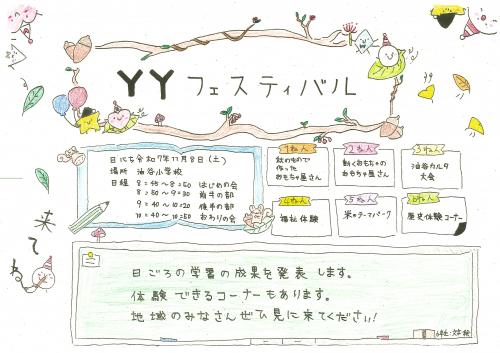 YYフェスティバル
日にち 令和7年11月8日(土)
場所 油谷小学校
日程 8:45~8:50 はじめの会
8:50~9:30 前半の部
9:40~10:20 後半の部
10:40~10:50 おわりの会
1ねん
秋のもので
作った
おもちゃ屋さん
2ねん
動くおもちゃの
おもちゃ屋さん
3ねん
油谷カルタ
大会
4ねん
福祉体験
5ねん
米のテーマパーク
6ねん
歴史体験コーナー
来てね
日ごろの学習の成果を発表します。
体験できるコーナーもあります。
地域のみなさんぜひ見に来てください!